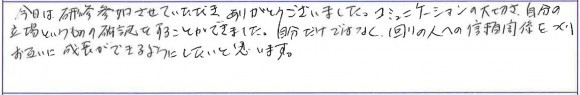 今日は研修参加させていただき、ありがとうございました。コミュニケーションの大切さ、自分の
立場というものの確認をすることができました。自分だけではなく、回りの人への信頼関係をつくり
お互いに成長ができるようにしたいと思います。